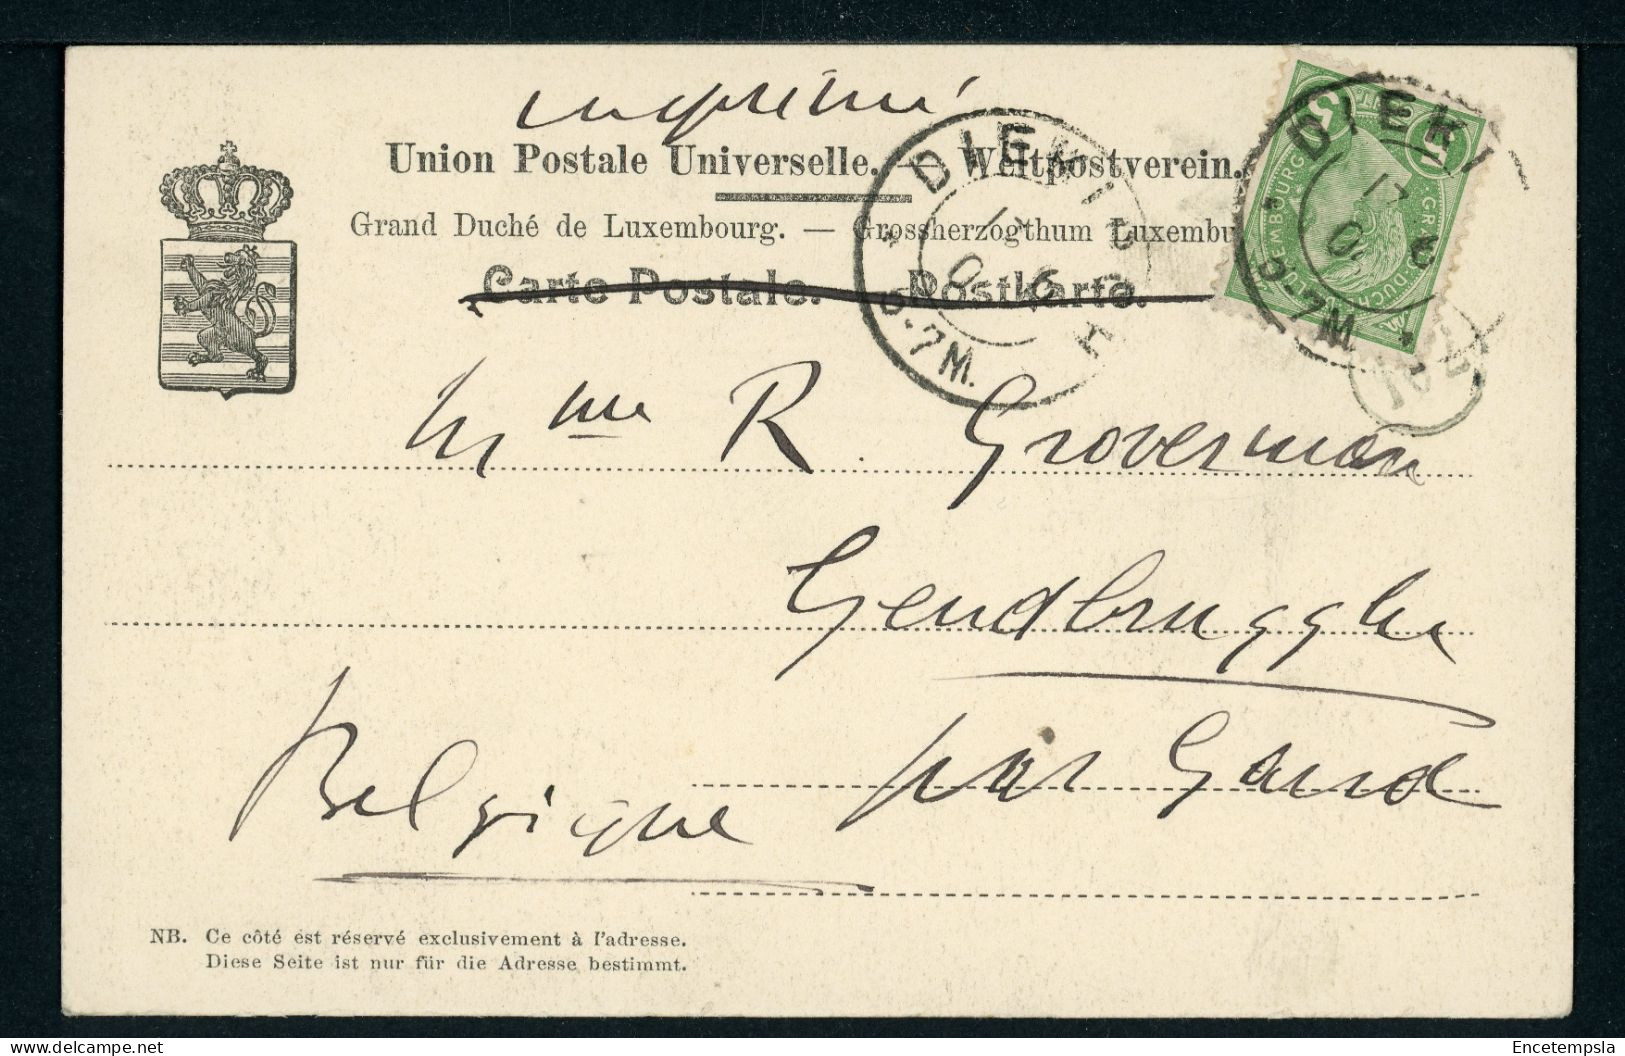 imprimé
Union Postale Universelle. — Weltpostverein.
Grand Duché de Luxembourg. — Grossherzogthum Luxembu
Carte Postale. Postkarte.
DIEKIRCH
6-7M.
DIEKI
6-7M.
102
Mme R. Groverman
Gendbrugghe
par Gand
Belgique
NB. Ce côté est réservé exclusivement à l'adresse.
Diese Seite ist nur für die Adresse bestimmt.
Encetempsla
www.delcampe.net